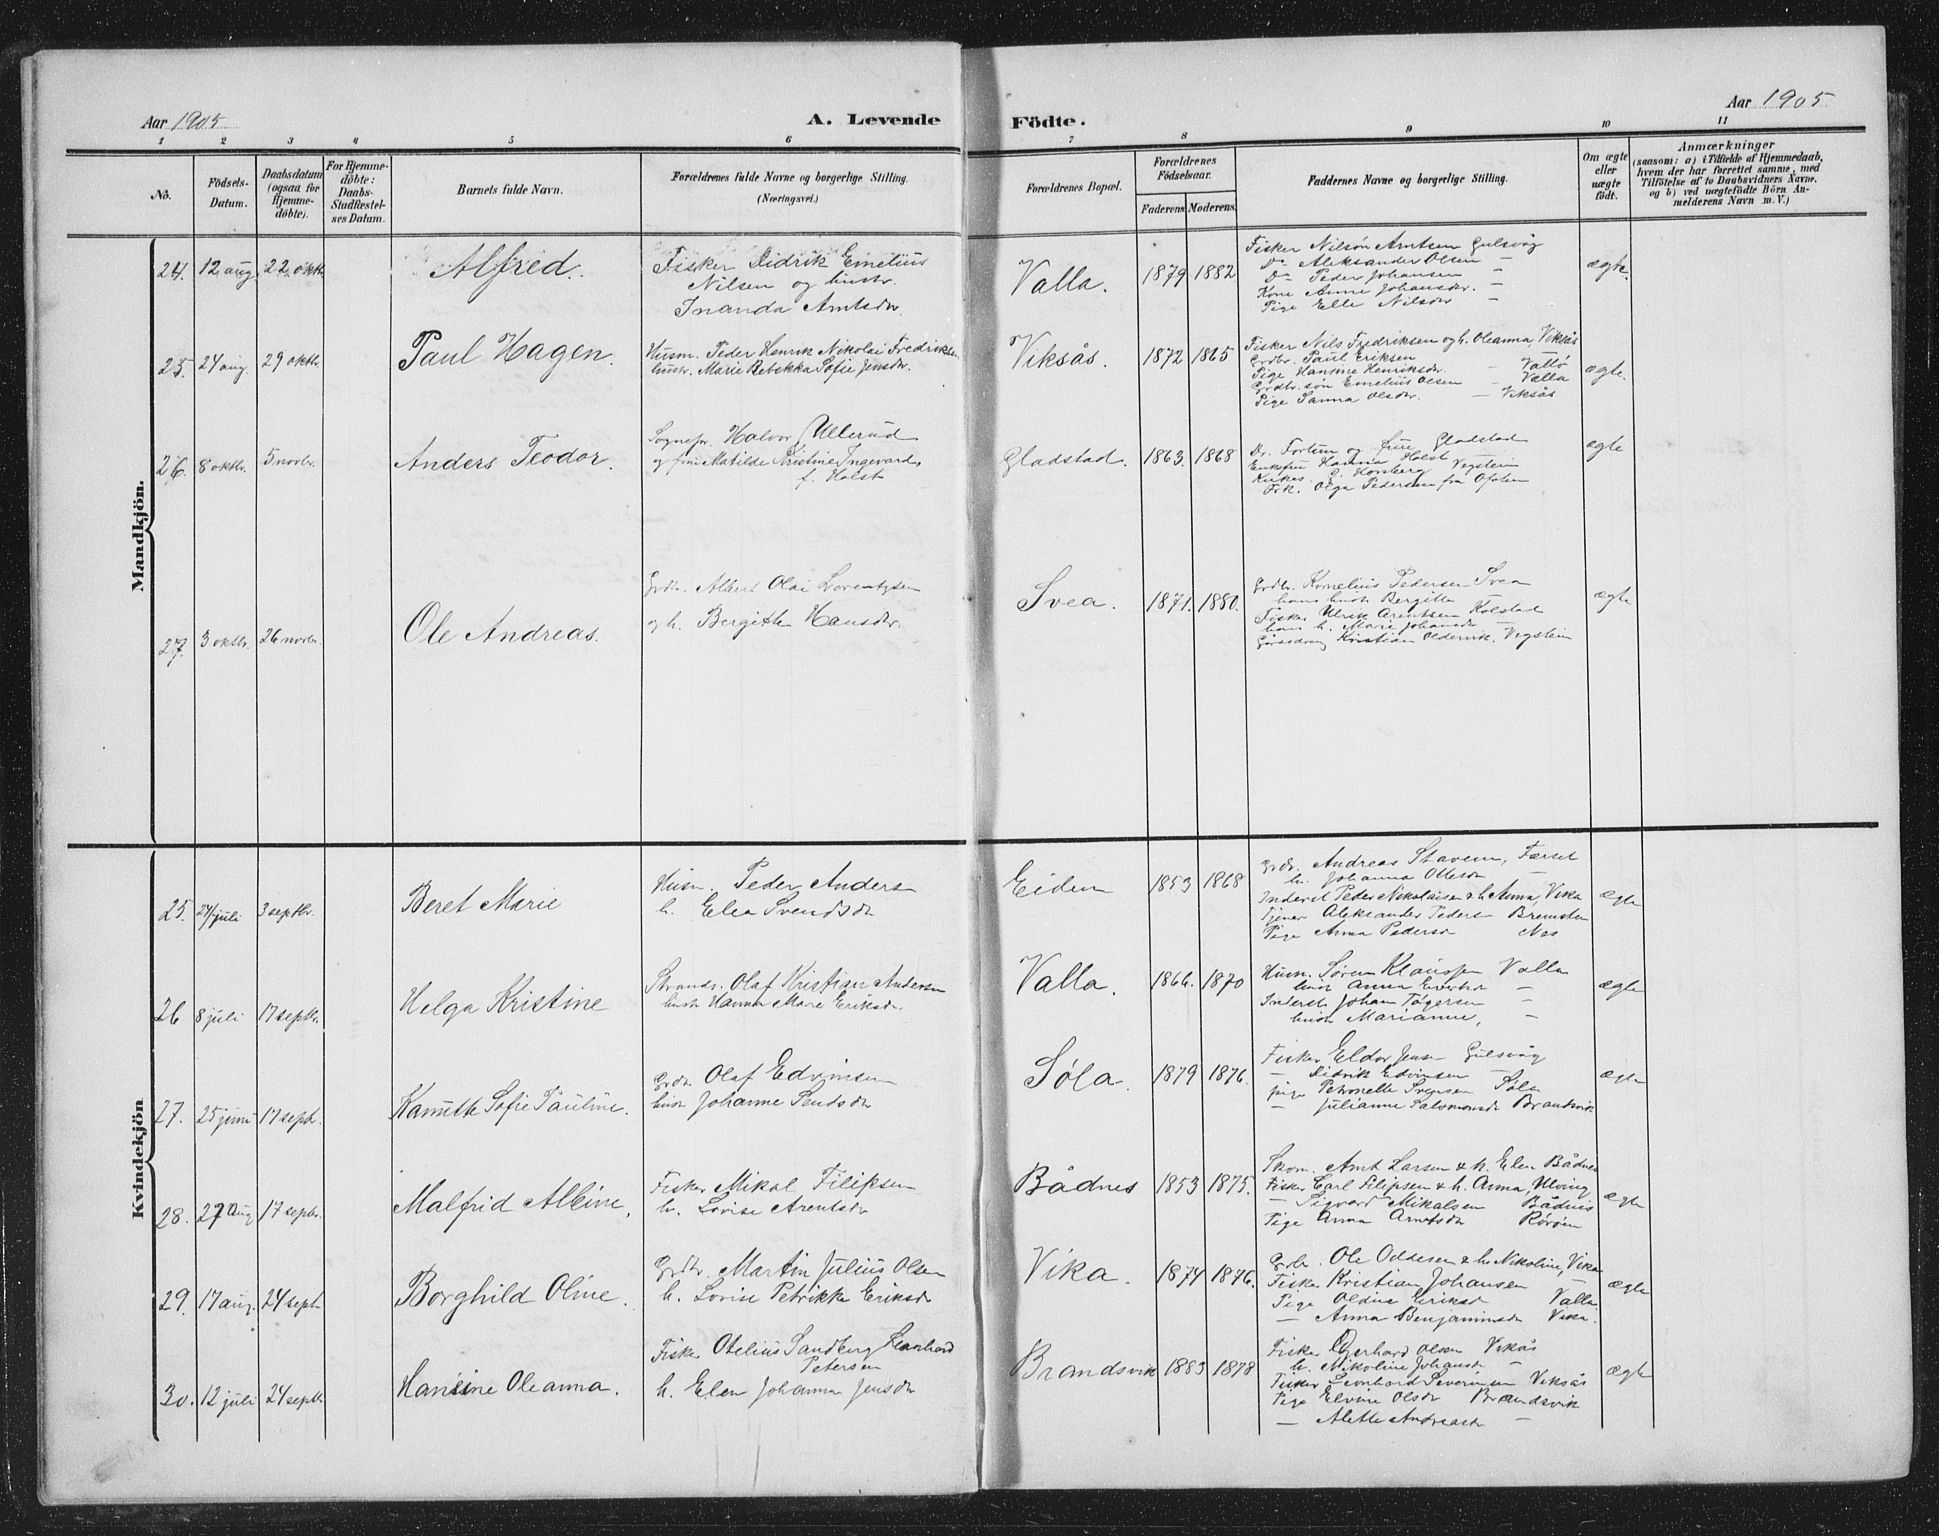 Aar 1905
A. Levende
Födte.
Aar 1905
1 2 3 4 5 6 7 8 9 10 11
No.
Födsels-
Datum.
Daabsdatum
(ogsaa for
Hjemme-
döbte).
For Hjemme-
döbte:
Daabs-
Stadfæstel-
ses Datum.
Barnets fulde Navn.
Forældrenes fulde Navne og borgerlige Stilling.
(Næringsvei.)
Forældrenes Bopæl.
Forældrenes
Födselsaar.
Faderens Moderens.
Faddernes Navne og borgerlige Stilling.
Om ægte
eller
uægte
födt.
Anmærkninger
(saasom: a) i Tilfælde af Hjemmedaab,
hvem der har forrettet samme, med
Tilföielse af to Daabsvidners Navne.
og b) ved uegtefödte Börn An-
melderens Navn m. V.)
Mandkjön.
24. 12 aug. 22 oktbr. Alfred.
Fisker Didrik Emelius
Nilsen og hustr.
Inanda Arntsdtr.
Valla. 1879 1882
Fisker Nilsön Arntsen Gulsvåg
Do Aleksander Olsen —
Do Peder Johansen —
Kone Anne Johansdtr. —
Pige Elle Nilsdtr —
ægte.
25. 24 aug. 29 oktbr. Paul Hagen.
Husm. Peder Henrik Nikolai Fredriksen
hustr. Marie Rebekka Sofie Jensdtr.
Viksås. 1872 1865
Fisker Nils Fredriksen og h. Oleanna, Viksås
Grdbr. Paul Eriksen
Pige Hansine Henriksdtr. — Vallø
Grdbr. søn Emelius Olsen — Valla
Pige Sanna Olsdtr. — Viksås
ægte.
26. 8 oktbr. 5 novbr. Anders Teodor.
Sognepr. Halvor Ullerud
og fru Matilde Kristine Ingevard,
f. Holst
Gladstad. 1863. 1868
Dr. Fortun og frue Gladstad
Enkefru Hanna Holst
Kirkes. G. Horsberg Vegstein
Frk. Olga Pedersen fra Ofoten
ægte
27. 3 oktbr. 26 novbr. Ole Andreas.
Grdbr. Albert Olai Lorentzsen
og h. Bergitte Hansdtr.
Svea. 1871. 1880.
Grdbr. Kornelius Pedersen Svea
hans hustr Bergitte —
Fisker Ulrik Arentsen Kolstad
hans h. Marie Johansdtr —
Gårdsdreng Kristian Oldervik. Vegstein
ægte
Kvindekjön
25. 24/juli 3 septbr. Beret Marie
Husm. Peder Anders
h. Elea Svendsdtr
Eidem 1853 1868
Grdbr. Andreas Stavem, Færset
h. Johanna Ottesdtr —
Inderst Peder Nikolaisen & h. Anna, Vika
Tjener Aleksander Peders Bremsten
Pige Anna Pedersd Nes
ægte
26 8 juli 17 septbr. Helga Kristine
Strands. Olaf Kristian Andersen
hustr Hanna Marie Eriksdr.
Valla. 1866. 1870
Husm. Søren Klausen Valla
hustr Anna —
Inderst Johan Tøgersen —
hustr Marianne, —
ægte
27. 25 juni 17 septbr. Kanutte Sofie Pauline.
Grdbr Olaf Edvinsen
hustr Johanne Sendsdtr
Søla. 1879 1876.
Fisker Eldor Jensen Gulsvåg
— Didrik Edvinsen —
pige Petronelle Søla
— Julianne Salomonsdtr Brandsvik
ægte
28. 27 aug 17 septbr. Malfrid Albine.
Fisker Mikal Filipsen
h. Lovise Arentsdtr
Bådnes 1853 1875.
Skom. Arnt Larsen & h. Elen Bådnes
Fisker Carl Filipsen & h. Anna, Ulving
— Sigvard Mikalsen Bådnes
Pige Anna Arnetsdtr Rørøen
ægte
29. 17 aug. 24 septbr Borghild Oline.
Grdbr. Martin Julius Olsen
h. Lovise Petrikke Eriksdtr
Vika. 1874 1876.
Grdbr. Ole Oddesen & h. Nikoline, Vika
Fisker Kristian Johansen —
Pige Oldine Eriksd Valla
— Anna Benjaminsdtr Vika.
ægte
30. 12 juli 24 septbr. Hansine Oleanna.
Fisker Otelius Sandberg Leonhard
Petersen
h. Elen Johanna Jensdtr
Brandsvik 1883 1878
Fisker Gerhard Olsen Viksås
h. Nikoline Johansd —
Fisker Leonhard Severinsen Viksås
Pige Elvine Olsdtr Brandsvik
— Alette Andreasdtr —
ægte